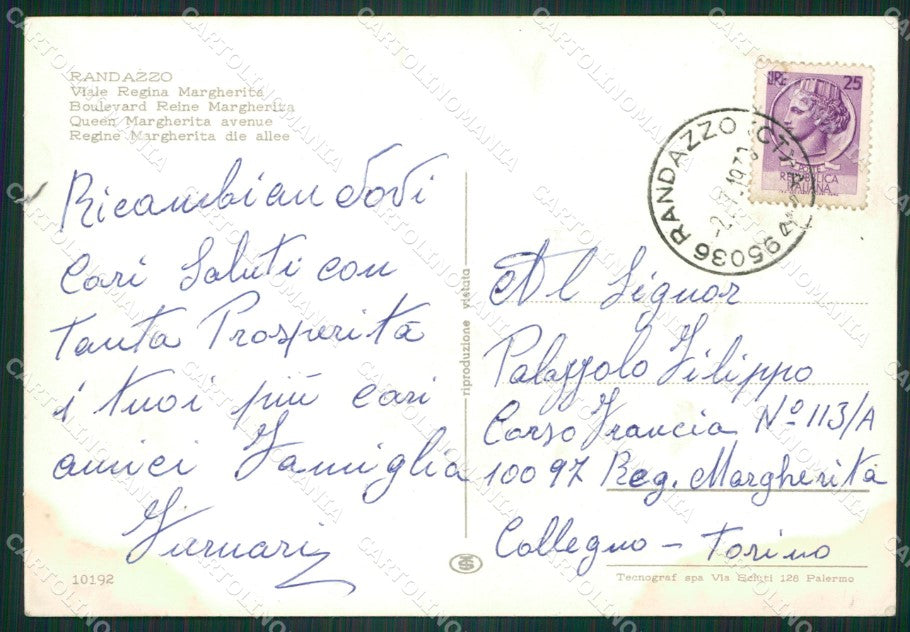 RANDAZZO
Viale Regina Margherita
Boulevard Reine Margherita
Queen Margherita avenue
Regine Margherita die allee
Ricambiandovi
Cari Saluti con
Tanta Prosperità
i tuoi più cari
amici Famiglia
10192
riproduzione vietata
LIRE 25
REPUBBLICA
ITALIANA
95036 RANDAZZO (CT)
Al Signor
Palazzolo Filippo
Corso Francia Nº 113/A
10097 Reg. Margherita
Collegno - Torino
Tecnograf spa Via Sciuti 128 Palermo
CARTOLINOMANIA